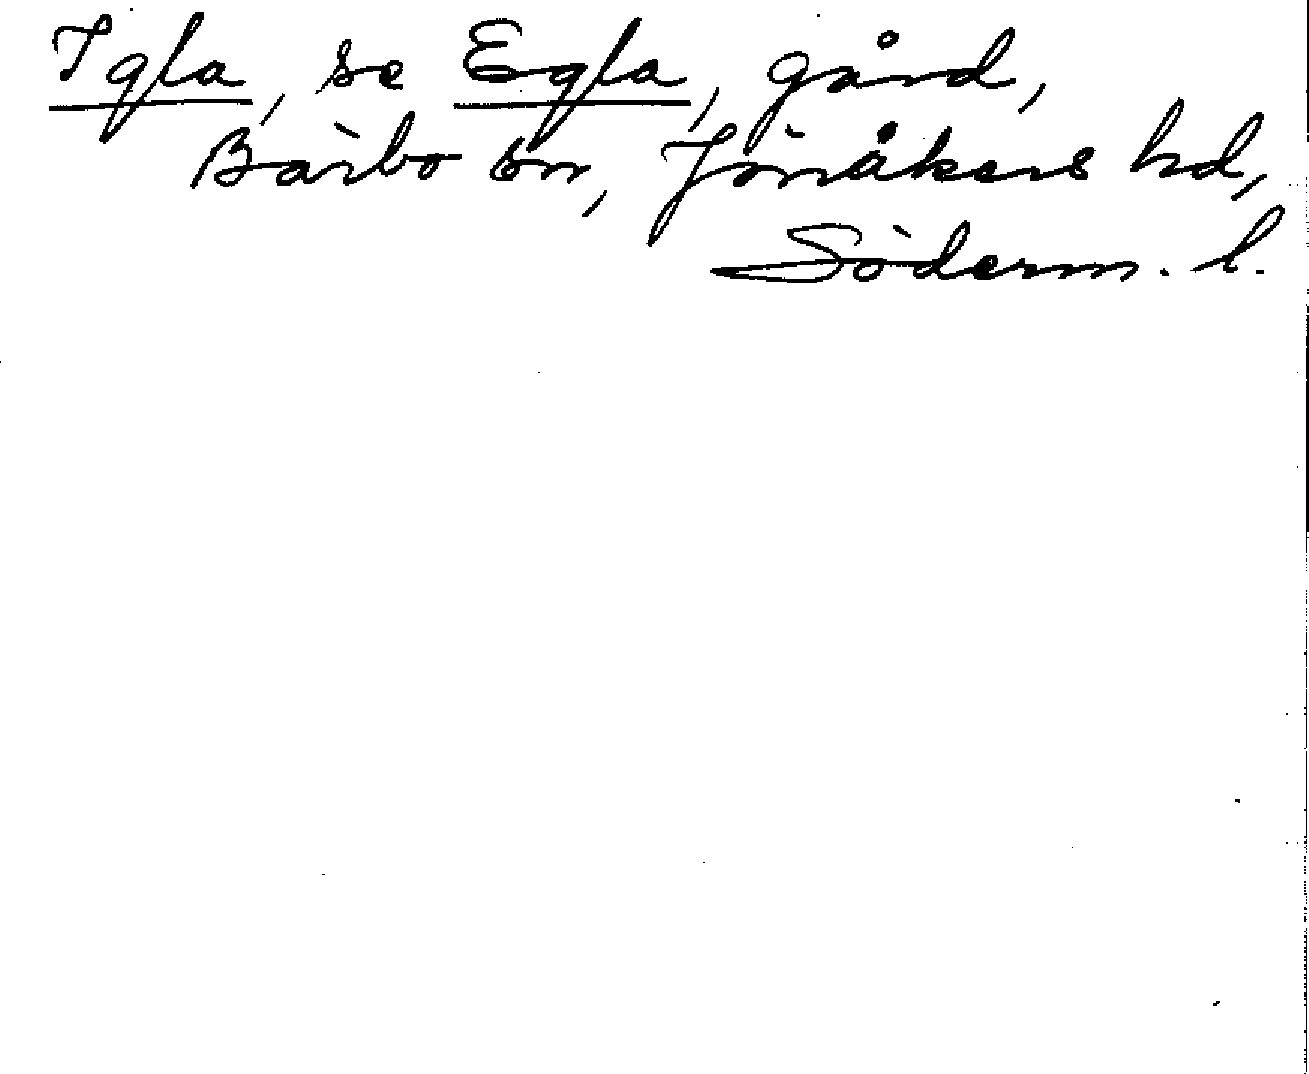 Igla, se Egla, gård,
Bärbo sn, Jönåkers hd,
Söderm. l.